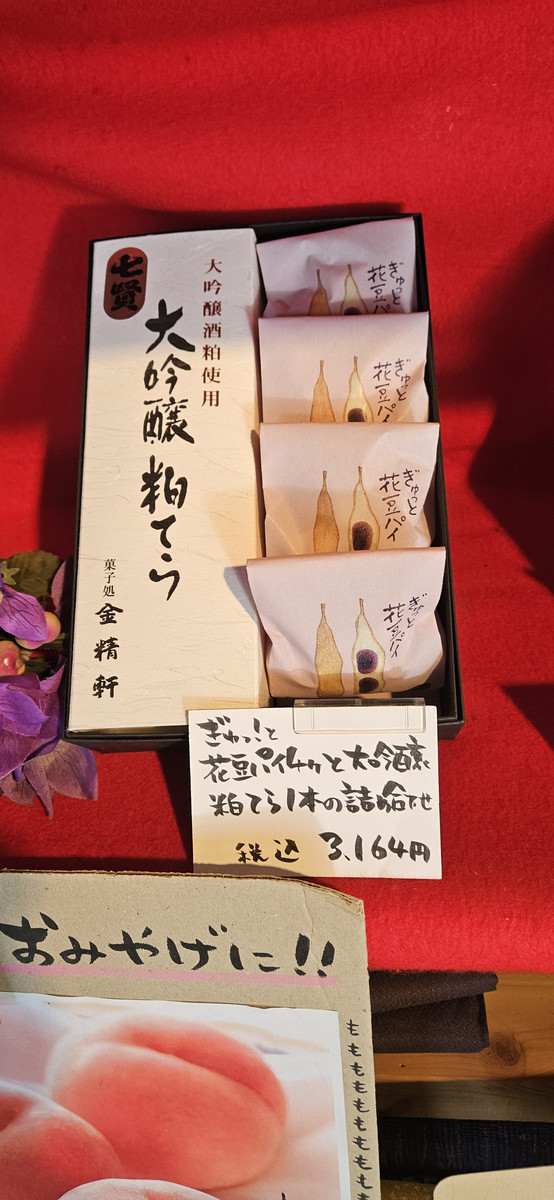 七賢
大吟醸酒粕使用
大吟醸粕てら
菓子処
金精軒
ぎゅっと
花豆パイ
ぎゅっと
花豆パイ
ぎゅっと
花豆パイ
ぎゅっと
花豆パイ
ぎゅっ!と
花豆パイ4ヶと大吟醸
粕てら1本の詰合せ
税込 3,164円
おみやげに!!
ももももももももも